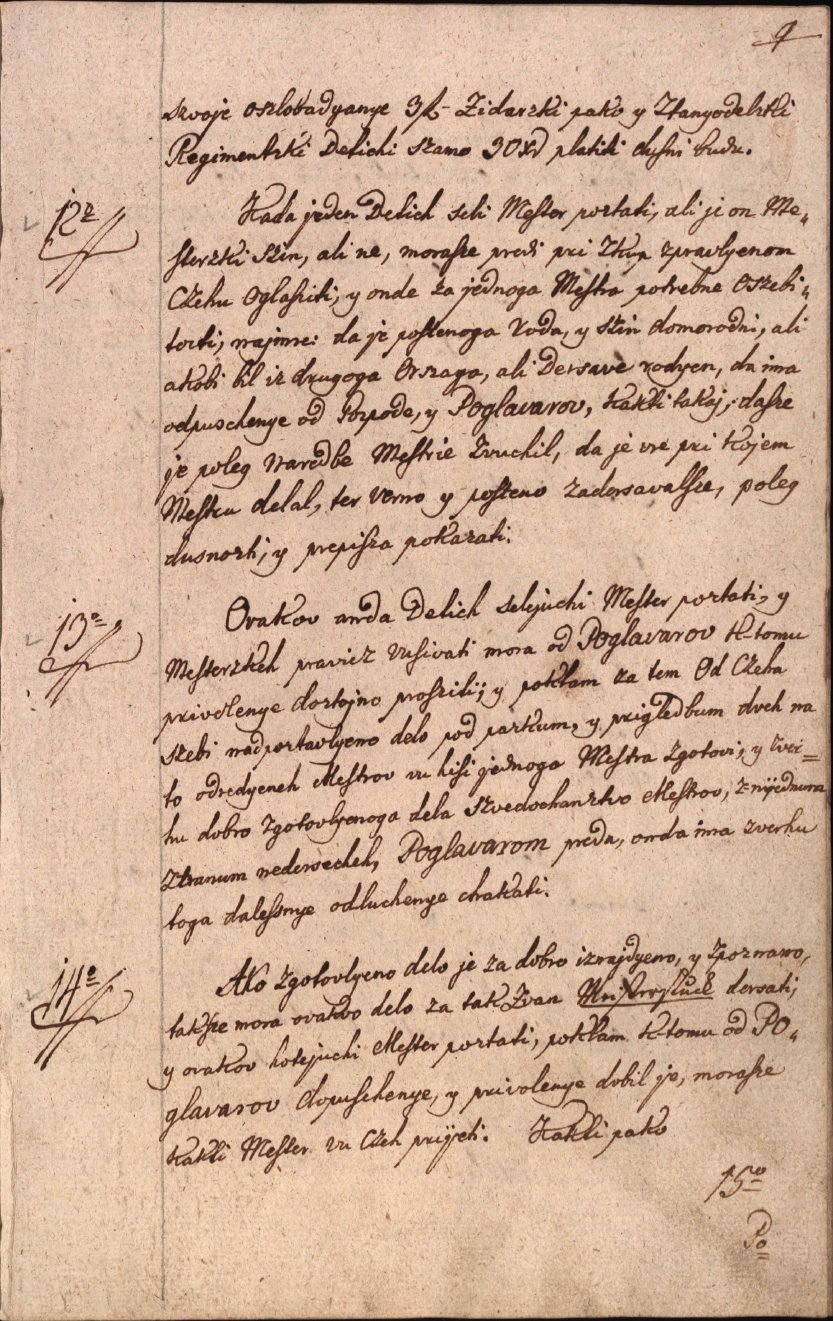 9
szvoje oszlobadyanye 3f- Zidarzki pako y Ztanyodelzki
Regimentzki Detichi szamo 30xr platiti dusni budu.
12o
Kada jeden Detich seli Mester poztati, ali ji on Me„
sterzki szin, ali ne, morasze predi pri Zkup zpravlyenom
Czehu oglasziti, y onde za jednoga Mestra potrebne Oszebi„
tozti, najmre: da je postenoga Roda, y szin domorodni, ali
akobi bil iz drugoga Orszaga, ali Dersave rodyen, da ima
odpuschenye od Gozpode, y Poglavarov, kakti takaj, dasze
je poleg naredbe Mestrie Zvuchil, da je vre pri kojem
Mestru delal, ter verno y posteno zadersavalsze, poleg
dusnozti, y prepisza pokazati.
13o
Ovakov anda Detich selejuchi Mester poztati, y
Mesterzkeh pravicz vusivati mora od Poglavarov k tomu
privolenye doztojno prosziti; y potlam za tem Od Czeha
szebi nadpoztavlyeno delo pod pazkum, y prigledbum dveh na
to odredyeneh Mestrov vu hisi jednoga Mestra Zgotovi, y zver=
hu dobro zgotovlyenoga dela Szvedochanztvo Mestrov, z=nijednum
Ztranum nedersecheh, Poglavarom preda, onda ima zverhu
toga dalessnye odluchenye chakati.
14o
Ako zgotovlyeno delo je za dobro iznajdyeno, y zpoznano,
taksze mora ovakvo delo za tak Zvan Meisterstuck dersati,
y ovakov hotejuchi Mester poztati, potlam k tomu od Po„
glavarov dopuschenye, y privolenye dobil je, morasze
kakti Mester vu Czeh prijeti. Kakti pako
15o
Po